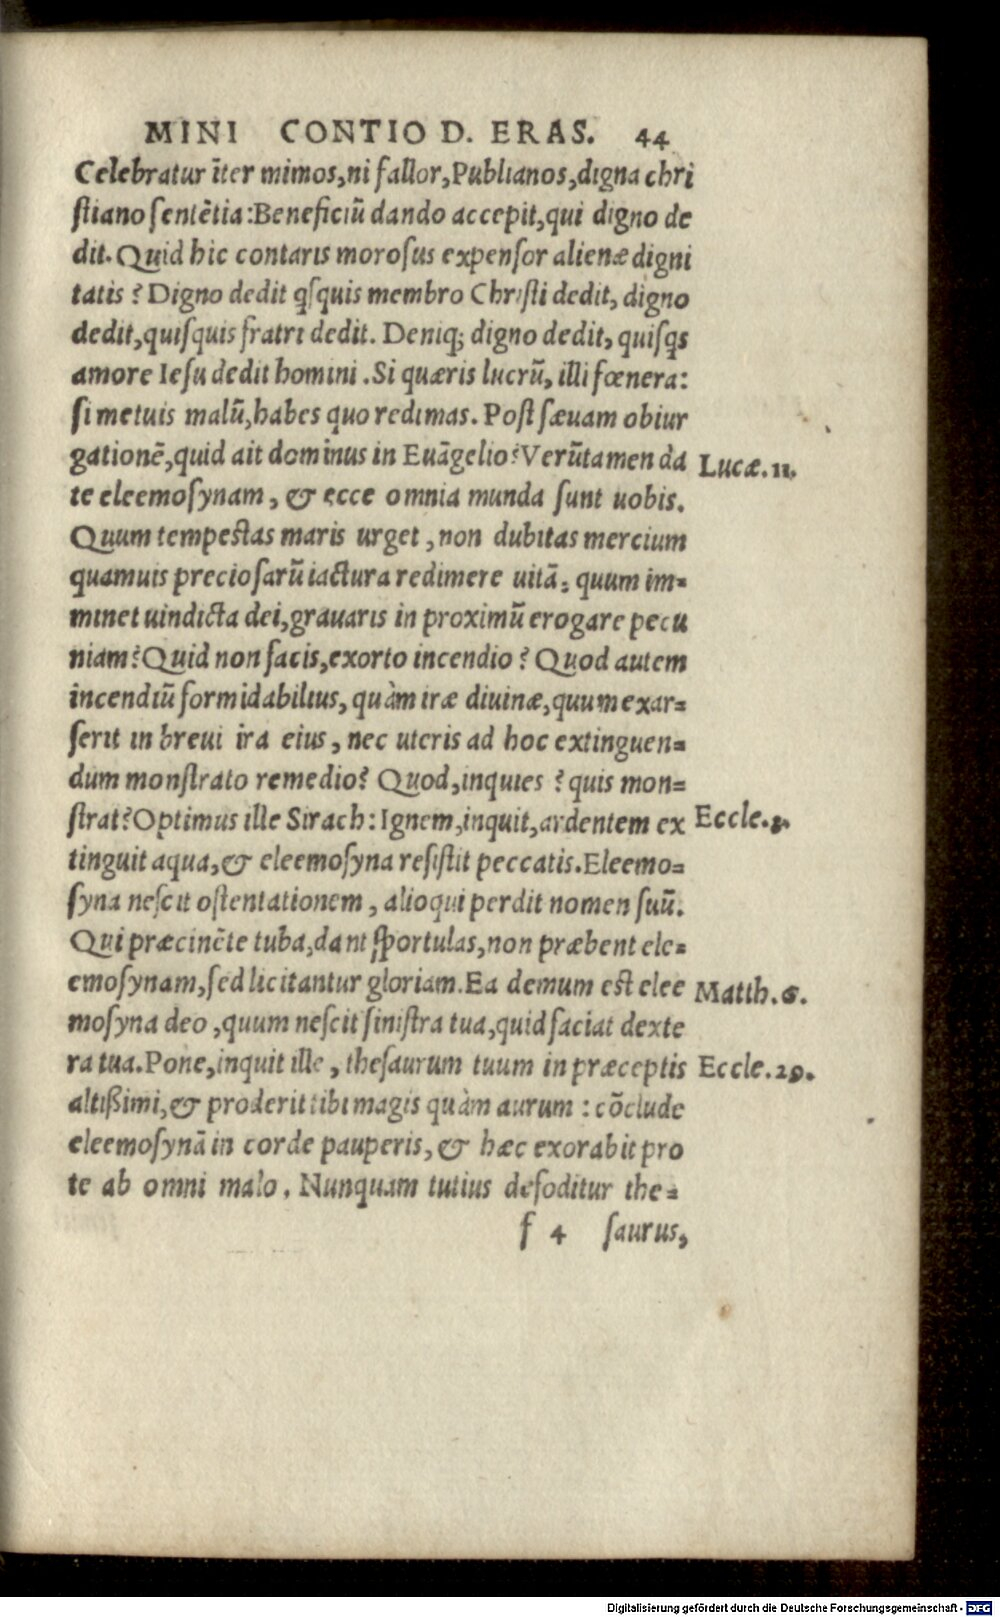 MINI CONTIO D. ERAS. 44
Celebratur īter mimos, ni fallor, Publianos, digna chri
ſtiano ſentētia: Beneficiū dando accepit, qui digno de
dit. Quid hic contaris moroſus expenſor alienæ digni
tatis? Digno dedit qſquis membro Chriſti dedit, digno
dedit, quiſquis fratri dedit. Deniq; digno dedit, quiſqs
amore Ieſu dedit homini. Si quæris lucrū, illi fœnera:
ſi metuis malū, habes quo redimas. Poſt ſæuam obiur
gationē, quid ait dominus in Euāgelio? Verūtamen da
Lucæ. 11.
te eleemoſynam, & ecce omnia munda ſunt uobis.
Quum tempeſtas maris urget, non dubitas mercium
quamuis precioſarū iactura redimere uitā: quum im=
minet uindicta dei, grauaris in proximū erogare pecu
niam? Quid non facis, exorto incendio? Quod autem
incendiū formidabilius, quàm iræ diuinæ, quum exar=
ſerit in breui ira eius, nec uteris ad hoc extinguen=
dum monſtrato remedio? Quod, inquies? quis mon=
ſtrat? Optimus ille Sirach: Ignem, inquit, ardentem ex
Eccle. 3.
tinguit aqua, & eleemoſyna reſiſtit peccatis. Eleemo=
ſyna neſcit oſtentationem, alioqui perdit nomen ſuū.
Qui præcinēte tuba, dant ſportulas, non præbent ele=
emoſynam, ſed licitantur gloriam. Ea demum eſt elee
Matth. 6.
moſyna deo, quum neſcit ſiniſtra tua, quid faciat dexte
ra tua. Pone, inquit ille, theſaurum tuum in præceptis
Eccle. 29.
altißimi, & proderit tibi magis quàm aurum: cōclude
eleemoſynā in corde pauperis, & hæc exorabit pro
te ab omni malo. Nunquam tutius defoditur the=
f 4 ſaurus,
Digitalisierung gefördert durch die Deutsche Forschungsgemeinschaft - DFG